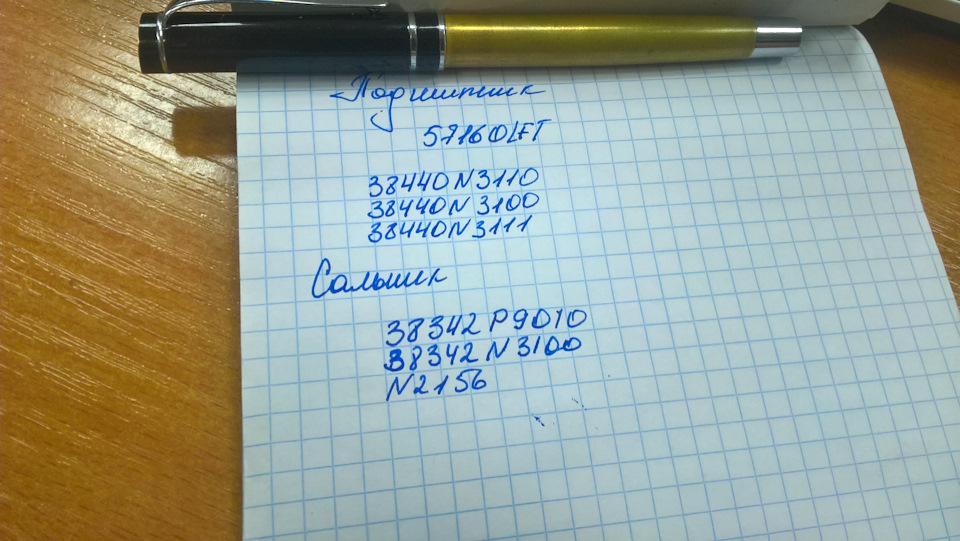 Подшипник
57160LFT
38440N3110
38440N3100
38440N3111
Сальник
38342P9010
38342N3100
N2156